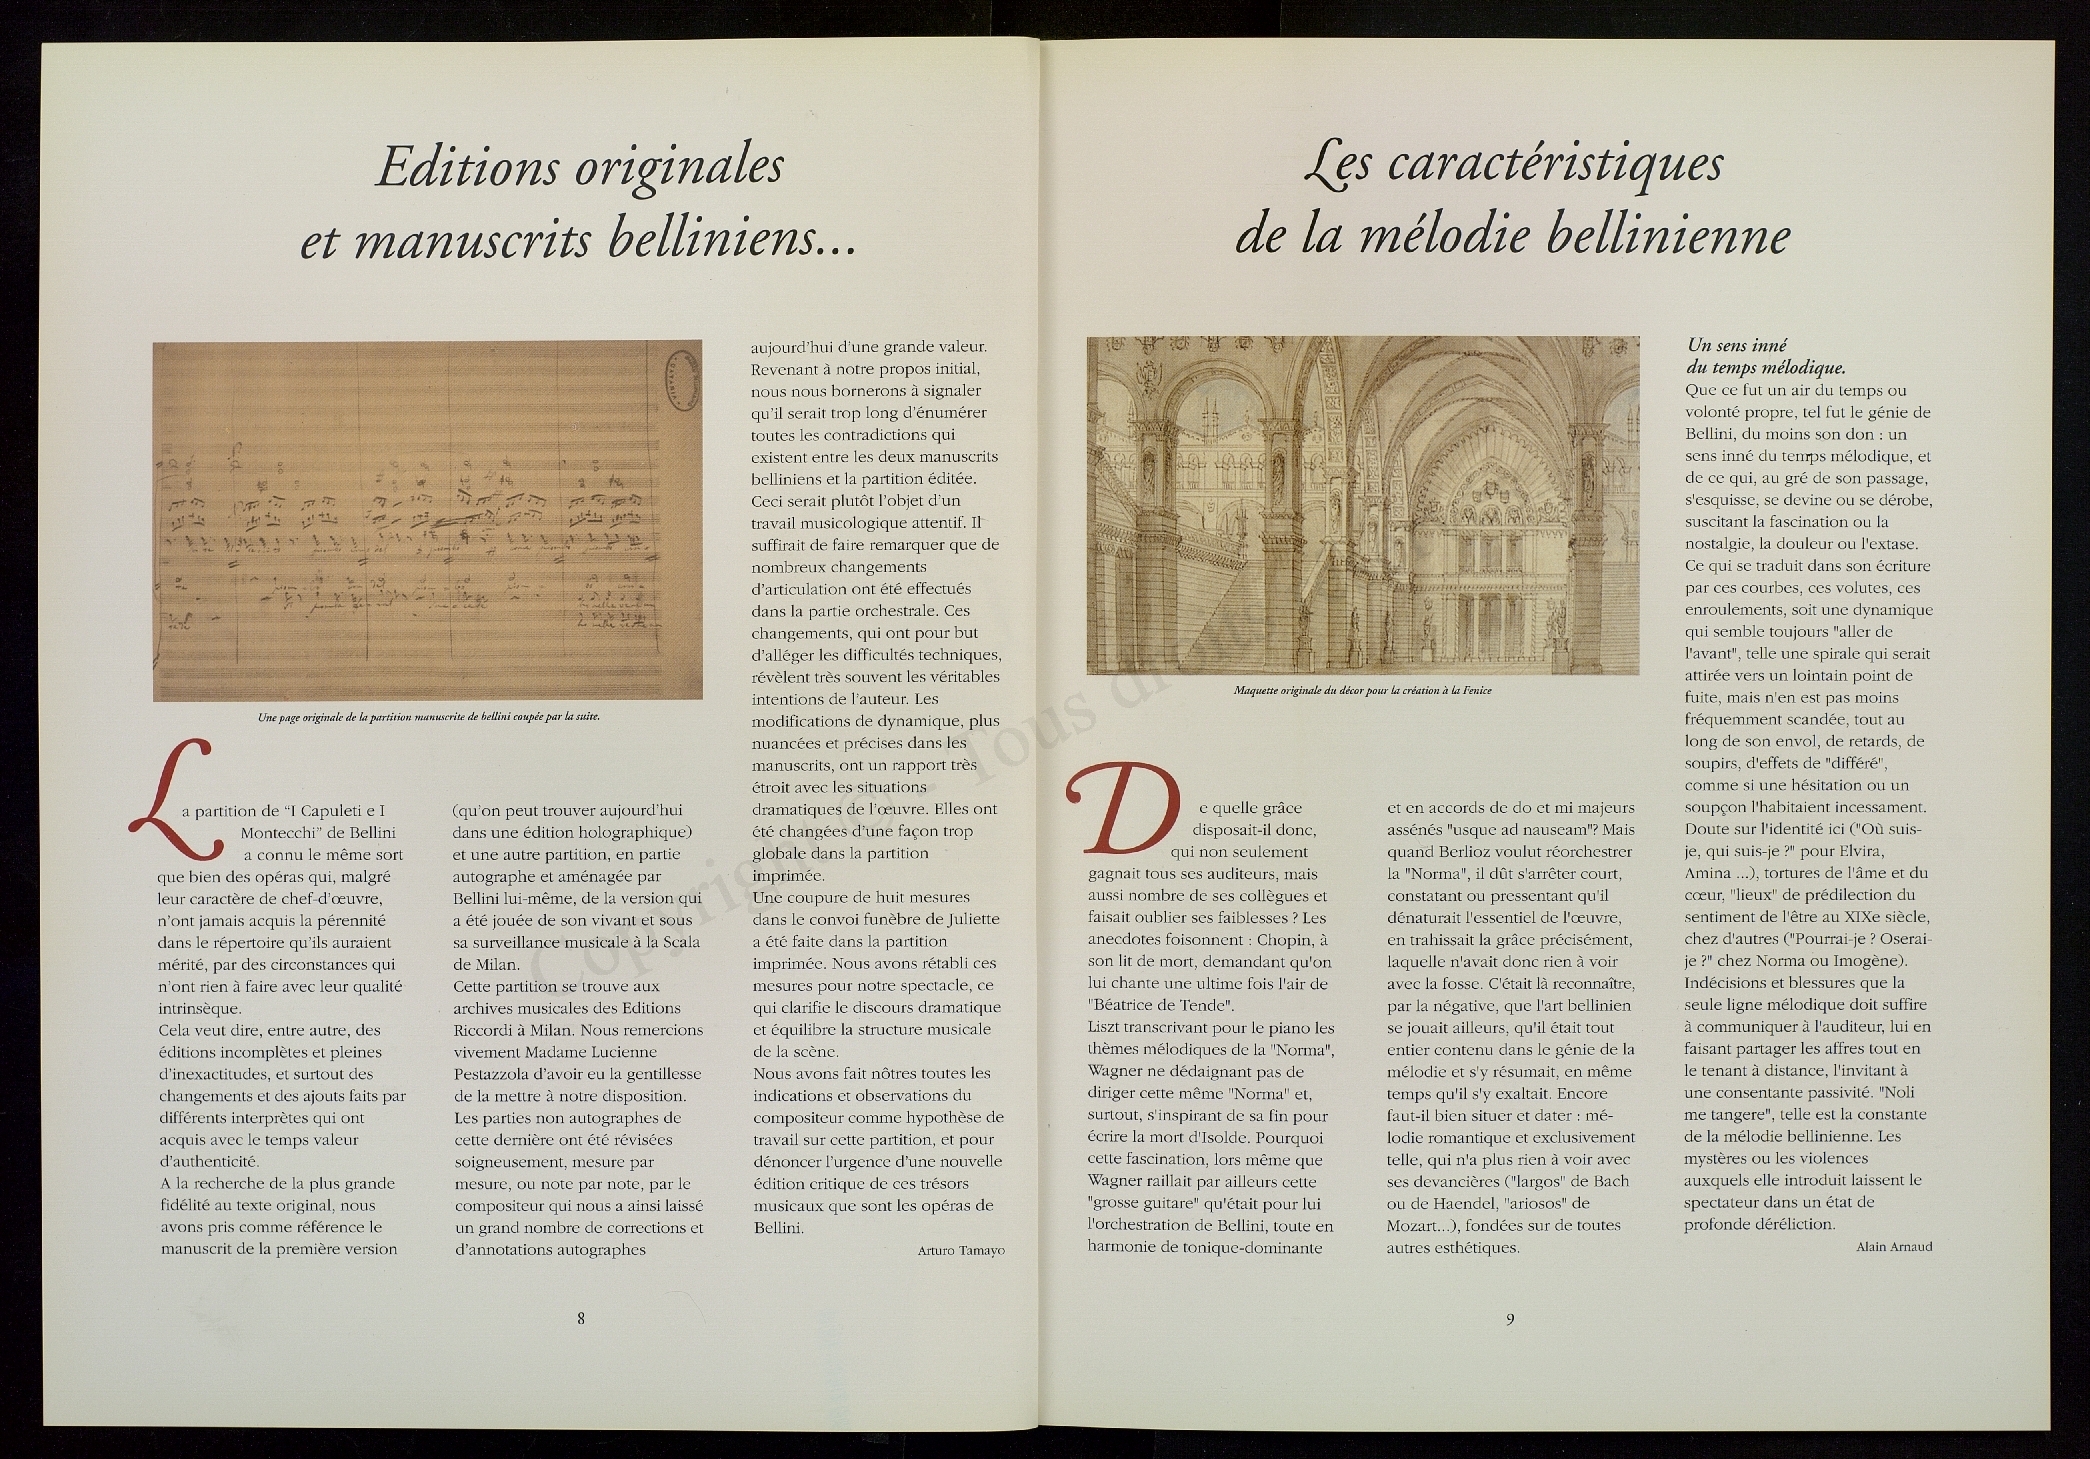 Editions originales
et manuscrits belliniens...
Une page originale de la partition manuscrite de bellini coupée par la suite.
La partition de “I Capuleti e I
Montecchi” de Bellini
a connu le même sort
que bien des opéras qui, malgré
leur caractère de chef-d’œuvre,
n’ont jamais acquis la pérennité
dans le répertoire qu’ils auraient
mérité, par des circonstances qui
n’ont rien à faire avec leur qualité
intrinsèque.
Cela veut dire, entre autre, des
éditions incomplètes et pleines
d’inexactitudes, et surtout des
changements et des ajouts faits par
différents interprètes qui ont
acquis avec le temps valeur
d’authenticité.
A la recherche de la plus grande
fidélité au texte original, nous
avons pris comme référence le
manuscrit de la première version
(qu’on peut trouver aujourd’hui
dans une édition holographique)
et une autre partition, en partie
autographe et aménagée par
Bellini lui-même, de la version qui
a été jouée de son vivant et sous
sa surveillance musicale à la Scala
de Milan.
Cette partition se trouve aux
archives musicales des Editions
Riccordi à Milan. Nous remercions
vivement Madame Lucienne
Pestazzola d’avoir eu la gentillesse
de la mettre à notre disposition.
Les parties non autographes de
cette dernière ont été révisées
soigneusement, mesure par
mesure, ou note par note, par le
compositeur qui nous a ainsi laissé
un grand nombre de corrections et
d’annotations autographes
aujourd’hui d’une grande valeur.
Revenant à notre propos initial,
nous nous bornerons à signaler
qu’il serait trop long d’énumérer
toutes les contradictions qui
existent entre les deux manuscrits
belliniens et la partition éditée.
Ceci serait plutôt l’objet d’un
travail musicologique attentif. Il
suffirait de faire remarquer que de
nombreux changements
d’articulation ont été effectués
dans la partie orchestrale. Ces
changements, qui ont pour but
d’alléger les difficultés techniques,
révèlent très souvent les véritables
intentions de l’auteur. Les
modifications de dynamique, plus
nuancées et précises dans les
manuscrits, ont un rapport très
étroit avec les situations
dramatiques de l’œuvre. Elles ont
été changées d’une façon trop
globale dans la partition
imprimée.
Une coupure de huit mesures
dans le convoi funèbre de Juliette
a été faite dans la partition
imprimée. Nous avons rétabli ces
mesures pour notre spectacle, ce
qui clarifie le discours dramatique
et équilibre la structure musicale
de la scène.
Nous avons fait nôtres toutes les
indications et observations du
compositeur comme hypothèse de
travail sur cette partition, et pour
dénoncer l’urgence d’une nouvelle
édition critique de ces trésors
musicaux que sont les opéras de
Bellini.
Arturo Tamayo
8
Les caractéristiques
de la mélodie bellinienne
Maquette originale du décor pour la création à la Fenice
De quelle grâce
disposait-il donc,
qui non seulement
gagnait tous ses auditeurs, mais
aussi nombre de ses collègues et
faisait oublier ses faiblesses ? Les
anecdotes foisonnent : Chopin, à
son lit de mort, demandant qu'on
lui chante une ultime fois l'air de
"Béatrice de Tende".
Liszt transcrivant pour le piano les
thèmes mélodiques de la "Norma",
Wagner ne dédaignant pas de
diriger cette même "Norma" et,
surtout, s'inspirant de sa fin pour
écrire la mort d'Isolde. Pourquoi
cette fascination, lors même que
Wagner raillait par ailleurs cette
"grosse guitare" qu'était pour lui
l'orchestration de Bellini, toute en
harmonie de tonique-dominante
et en accords de do et mi majeurs
assénés "usque ad nauseam"? Mais
quand Berlioz voulut réorchestrer
la "Norma", il dût s'arrêter court,
constatant ou pressentant qu'il
dénaturait l'essentiel de l'œuvre,
en trahissait la grâce précisément,
laquelle n'avait donc rien à voir
avec la fosse. C'était là reconnaître,
par la négative, que l'art bellinien
se jouait ailleurs, qu'il était tout
entier contenu dans le génie de la
mélodie et s'y résumait, en même
temps qu'il s'y exaltait. Encore
faut-il bien situer et dater : mé-
lodie romantique et exclusivement
telle, qui n'a plus rien à voir avec
ses devancières ("largos" de Bach
ou de Haendel, "ariosos" de
Mozart...), fondées sur de toutes
autres esthétiques.
Un sens inné
du temps mélodique.
Que ce fut un air du temps ou
volonté propre, tel fut le génie de
Bellini, du moins son don : un
sens inné du temps mélodique, et
de ce qui, au gré de son passage,
s'esquisse, se devine ou se dérobe,
suscitant la fascination ou la
nostalgie, la douleur ou l'extase.
Ce qui se traduit dans son écriture
par ces courbes, ces volutes, ces
enroulements, soit une dynamique
qui semble toujours "aller de
l'avant", telle une spirale qui serait
attirée vers un lointain point de
fuite, mais n'en est pas moins
fréquemment scandée, tout au
long de son envol, de retards, de
soupirs, d'effets de "différé",
comme si une hésitation ou un
soupçon l'habitaient incessament.
Doute sur l'identité ici ("Où suis-
je, qui suis-je ?" pour Elvira,
Amina ...), tortures de l'âme et du
cœur, "lieux" de prédilection du
sentiment de l'être au XIXe siècle,
chez d'autres ("Pourrai-je ? Oserai-
je ?" chez Norma ou Imogène).
Indécisions et blessures que la
seule ligne mélodique doit suffire
à communiquer à l'auditeur, lui en
faisant partager les affres tout en
le tenant à distance, l'invitant à
une consentante passivité. "Noli
me tangere", telle est la constante
de la mélodie bellinienne. Les
mystères ou les violences
auxquels elle introduit laissent le
spectateur dans un état de
profonde déréliction.
Alain Arnaud
9
Copyright © - Tous